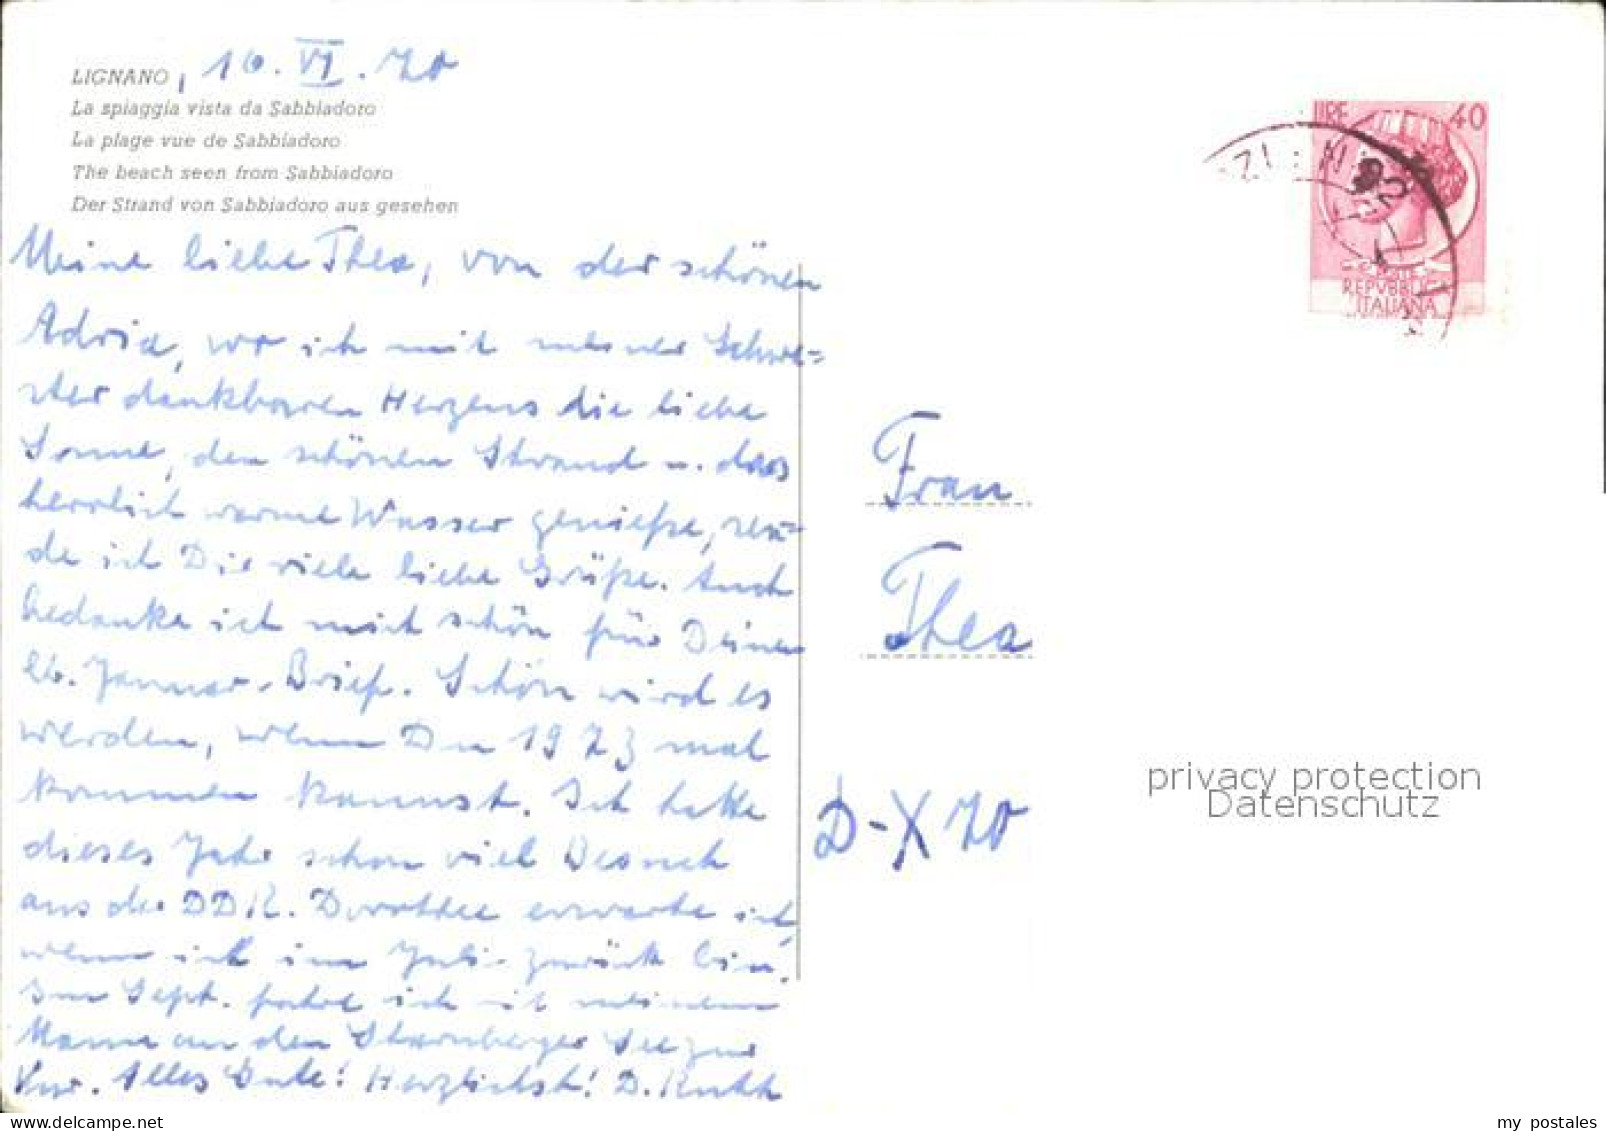 LIGNANO, 16. VI. 70
La spiaggia vista da Sabbiadoro
La plage vue de Sabbiadoro
The beach seen from Sabbiadoro
Der Strand von Sabbiadoro aus gesehen
Meine liebe Thea, von der schönen
Adria, wo ich mit meiner Schwe=
ster dankbaren Herzens die liebe
Sonne, den schönen Strand u. das
herrlich warme Wasser genieße, sen=
de ich Dir viele liebe Grüße. Auch
bedanke ich mich schön für Deinen
26. Januar-Brief. Schön wird es
werden, wenn Du 1973 mal
kommen kannst. Ich hatte
dieses Jahr schon viel Besuch
aus der DDR. Dorothee erwarte ich,
wenn ich im Juli zurück bin.
Im Sept. fahre ich mit meinem
Mann an den Starnberger See zur
Kur. Alles Gute! Herzlichst! D. Ruth
LIRE 40
POSTE
REPVBBLICA
ITALIANA
Frau
Thea
D-X 70
privacy protection
Datenschutz
my postales